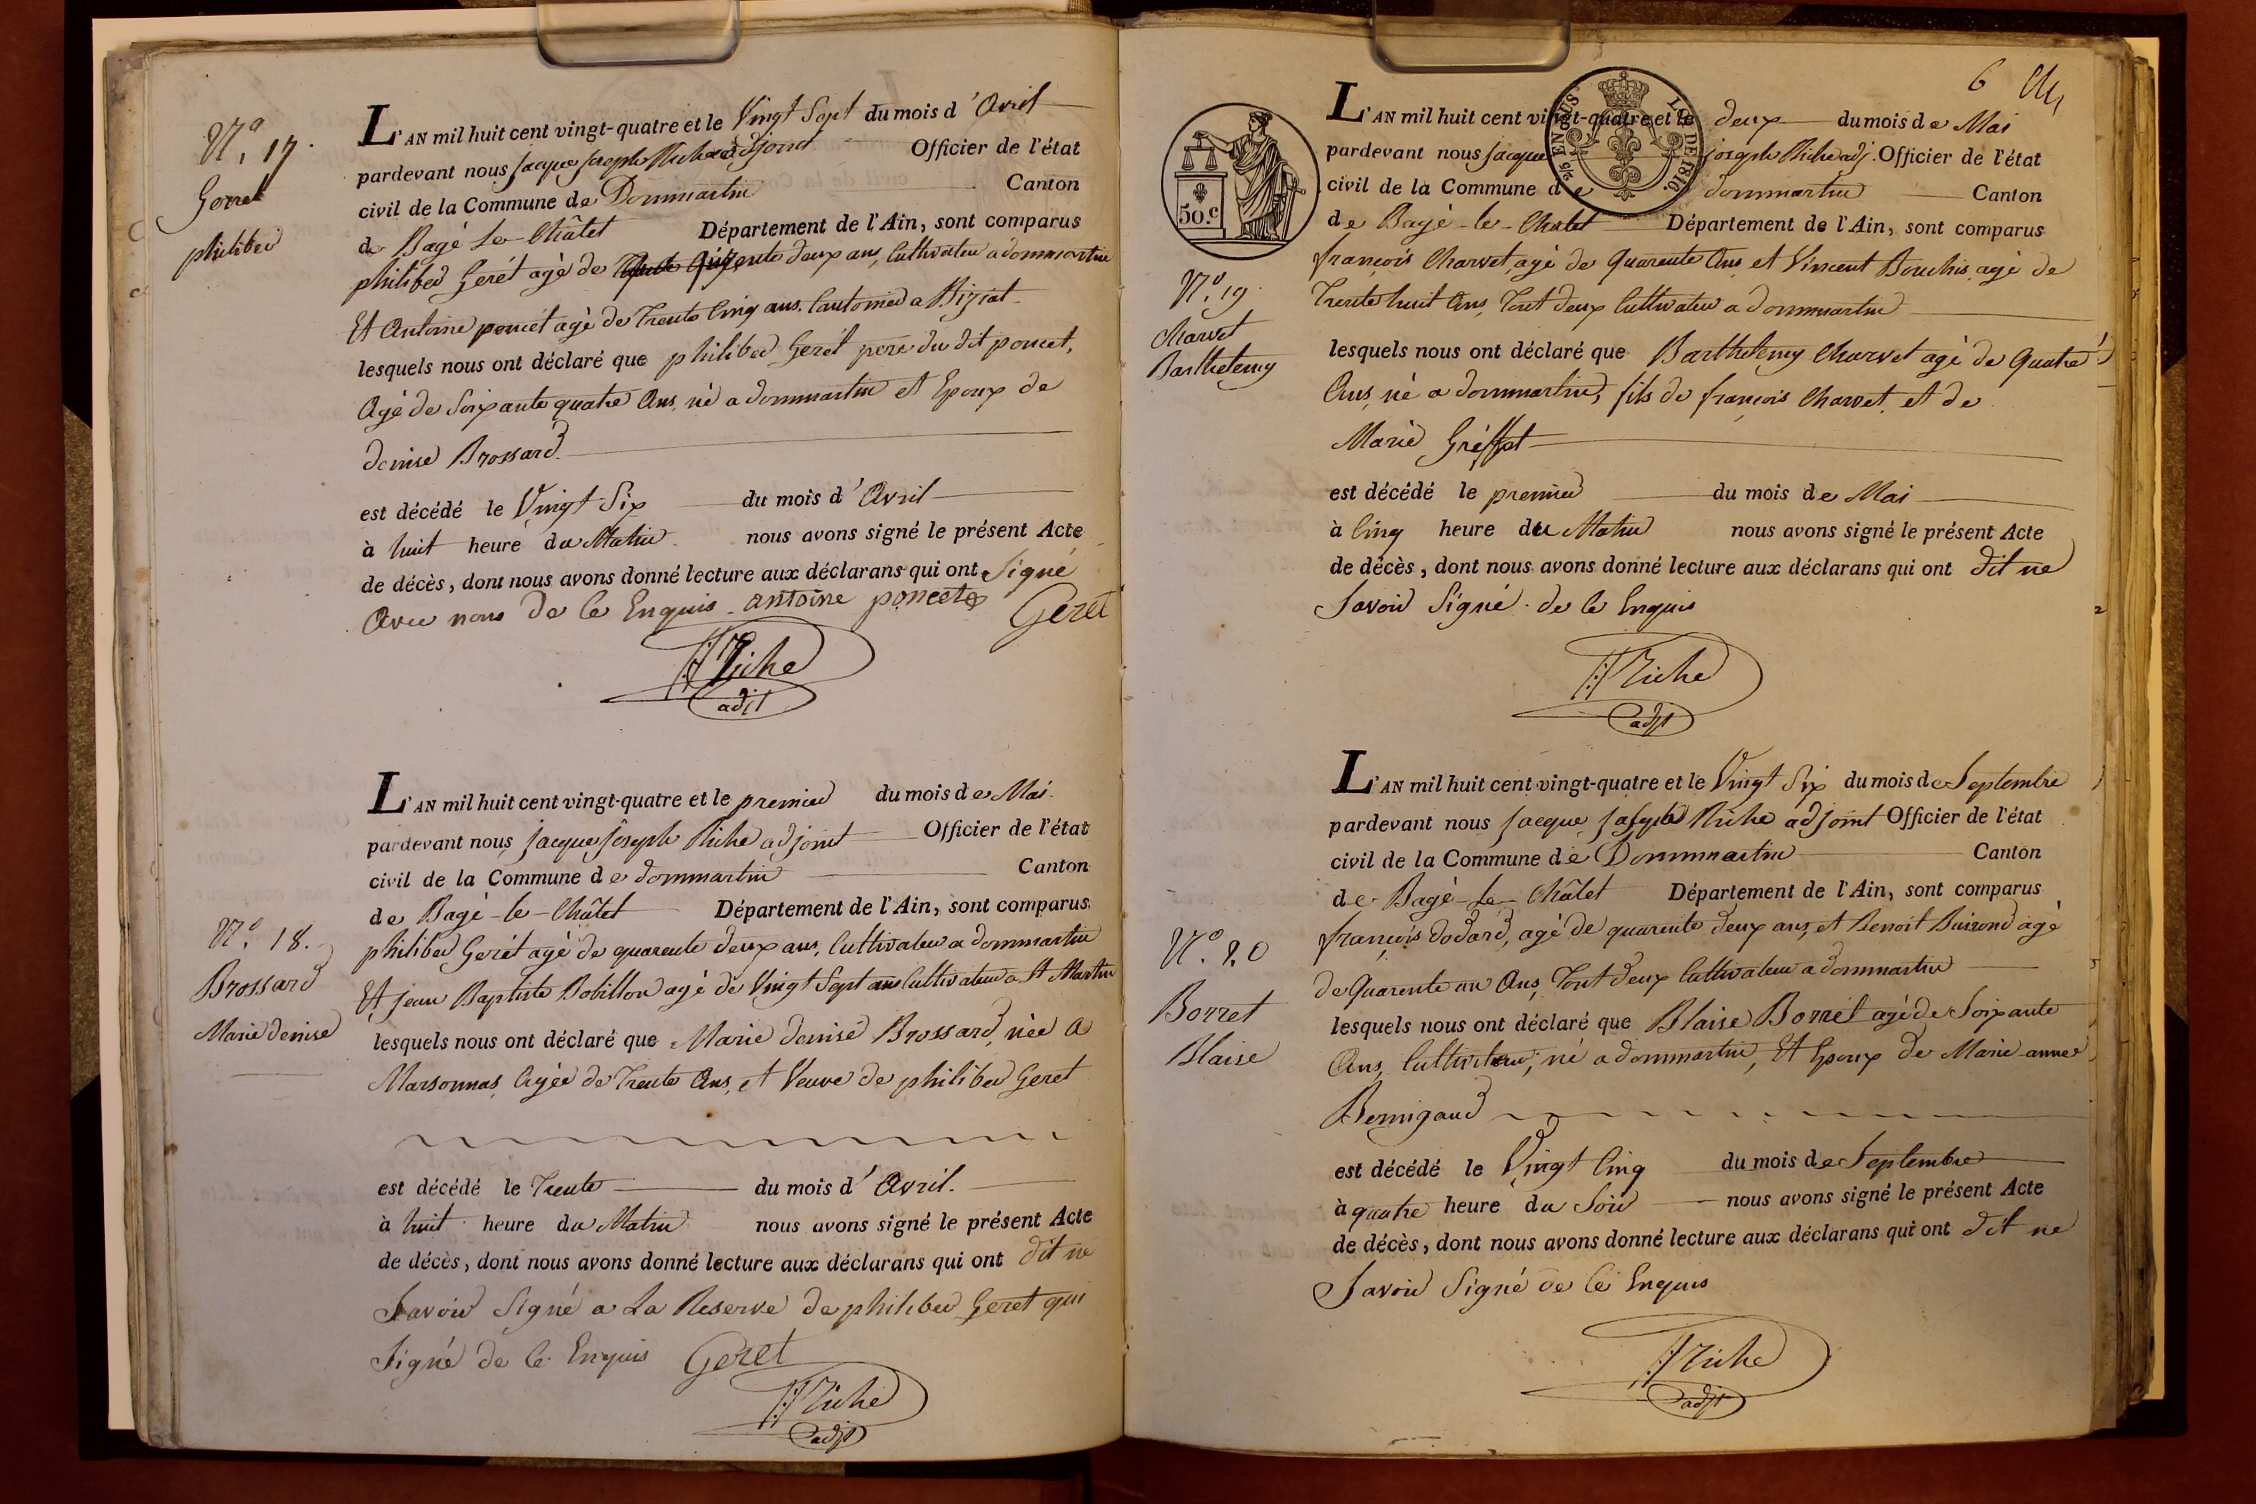 N.º 17.
Gerret
philiber
L'AN mil huit cent vingt-quatre et le Vingt Sept du mois d'Avril
pardevant nous jacque joseph Riche adjoint Officier de l'état
civil de la Commune de Dommartin Canton
de Bagé Le Châtel Département de l'Ain, sont comparus
philiber Gerét agé de quarente deux ans, Cultivateur a dommartin
Et Antoine poncét agé de Trente Cinq ans, Cantonier a Biziat
lesquels nous ont déclaré que philiber Gerét pere du dit poncet,
Agé de Soixante quatre Ans, né a dommartin et Epoux de
denise Brossard
est décédé le Vingt Six du mois d'Avril
à huit heure du Matin nous avons signé le présent Acte
de décès, dont nous avons donné lecture aux déclarans qui ont Signé
Avec nous De Ce Enquis antoine poncet Geret
Riche
adjt
N.º 18.
Brossard
Marie denise
L'AN mil huit cent vingt-quatre et le premier du mois de Mai
pardevant nous jacque joseph Riche adjoint Officier de l'état
civil de la Commune de dommartin Canton
de Bagé-le-Châtel Département de l'Ain, sont comparus
philiber Gerét agé de quarente deux ans, Cultivateur a dommartin
Et jean Baptiste Bobillon agé de Vingt Sept ans Cultivateur a St Martin
lesquels nous ont déclaré que Marie denise Brossard, née A
Marsonnas, Agée de Trente Ans, et Veuve de philiber Geret
est décédé le Trente du mois d'Avril.
à huit heure du Matin nous avons signé le présent Acte
de décès, dont nous avons donné lecture aux déclarans qui ont dit ne
Savoir Signé a La Reserve de philiber Geret qui
Signé de Ce Enquis Geret
Riche
adjt
6
5/6 EN SUS
L. DE 1816.
50.c
N.º 19.
Charvet
Barthelemy
L'AN mil huit cent vingt-quatre et le deux du mois de Mai
pardevant nous jacque joseph Riche adj. Officier de l'état
civil de la Commune de dommartin Canton
de Bagé-le-Chatel Département de l'Ain, sont comparus
françois Charvet, agé de Quarente Ans et Vincent Bouchis, agé de
Trente huit Ans, Tout deux Cultivateur a dommartin
lesquels nous ont déclaré que Barthelemy Charvet agé de Quatre
Ans, né a dommartin, fils de françois Charvet, et de
Marie Gréffet
est décédé le premier du mois de Mai
à Cinq heure du Matin nous avons signé le présent Acte
de décès, dont nous avons donné lecture aux déclarans qui ont dit ne
Savoir Signé de Ce Enquis
Riche
adjt
N.º 20
Borret
Blaise
L'AN mil huit cent vingt-quatre et le Vingt Six du mois de Septembre
pardevant nous jacque joseph Riche adjoint Officier de l'état
civil de la Commune de Dommartin Canton
de Bagé-Le-Châtel Département de l'Ain, sont comparus
françois dodard, agé de quarente deux ans, et Benoit Buirond agé
de Quarente un Ans, Tout deux Cultivateur a dommartin
lesquels nous ont déclaré que Blaise Borrét agé de Soixante
Ans, Cultivateur, né a dommartin, Et Epoux de Marie anne
Bernigaud
est décédé le Vingt Cinq du mois de Septembre
à quatre heure du Soir nous avons signé le présent Acte
de décès, dont nous avons donné lecture aux déclarans qui ont dit ne
Savoir Signé de Ce Enquis
Riche
adjt